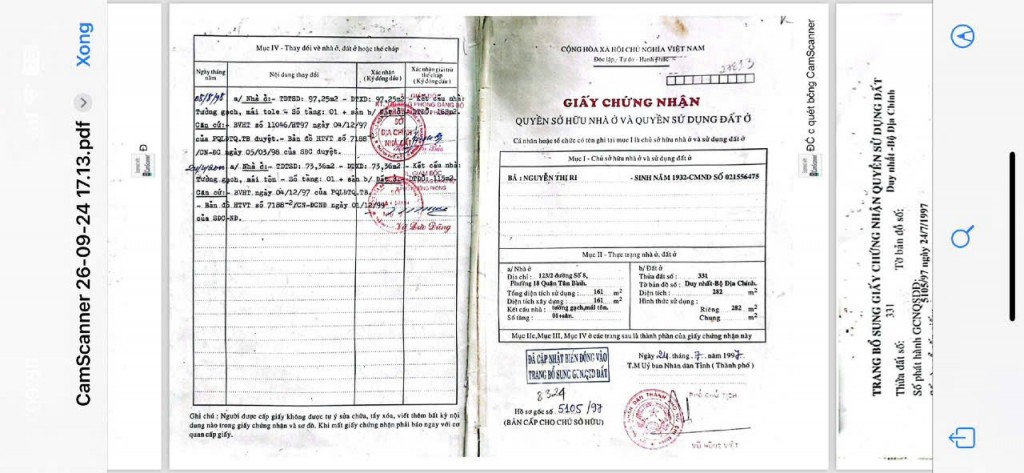 Xong
CamScanner 26-09-24 17.13.pdf
Mục IV - Thay đổi về nhà ở, đất ở hoặc thế chấp
Ngày tháng năm
Nội dung thay đổi
Xác nhận (Ký đóng dấu)
Xác nhận giải trừ thế chấp (Ký đóng dấu)
a/ Nhà ở:- TDTSD: 97,25m2 - DTXD: 97,25m2 - Kết cấu nhà:
Tường gạch, mái tole - Số tầng: 01 + sân b/
Căn cứ:- BVHT số 11046/HT97 ngày 04/12/97
của PQLĐTQ.TB duyệt.- Bản đồ HTVT số 7188-2
/CN-ĐC ngày 05/03/98 của SĐC duyệt.
a/ Nhà ở:- TDTSD: 73,36m2 - DTXD: 73,36m2 - Kết cấu nhà:
Tường gạch, mái tôn - Số tầng: 01 + sân b/ Đất ở:- DTĐƠ: 115m2.
Căn cứ:- BVHT ngày 04/12/97 của PQLĐTQ.TB.
- Bản đồ HTVT số 7188-2/CN-ĐCNĐ ngày 01/12/99
của SĐC-NĐ.
SỞ
ĐỊA CHÍNH
NHÀ ĐẤT
Ghi chú: Người được cấp giấy không được tự ý sửa chữa, tẩy xóa, viết thêm bất kỳ nội
dung nào trong giấy chứng nhận và sơ đồ. Khi mất giấy chứng nhận phải báo ngay với cơ
quan cấp giấy.
CỘNG HÒA XÃ HỘI CHỦ NGHĨA VIỆT NAM
Độc lập - Tự do - Hạnh phúc
GIẤY CHỨNG NHẬN
QUYỀN SỞ HỮU NHÀ Ở VÀ QUYỀN SỬ DỤNG ĐẤT Ở
Cá nhân hoặc tổ chức có tên ghi tại mục I là chủ sở hữu nhà ở và sử dụng đất ở
Mục I - Chủ sở hữu nhà ở và sử dụng đất ở
BÀ : NGUYỄN THỊ RI - SINH NĂM 1932-CMND SỐ 021556475
Mục II - Thực trạng nhà ở, đất ở
a/ Nhà ở
Địa chỉ : 123/2 đường Số 8,
Phường 18 Quận Tân Bình.
Tổng diện tích sử dụng : 161 m2
Diện tích xây dựng : 161 m2
Kết cấu nhà : tường gạch,mái tôn.
Số tầng : 01+sân.
b/ Đất ở
Thửa đất số : 331
Tờ bản đồ số : Duy nhất-Bộ Địa Chính.
Diện tích : 282 m2
Hình thức sử dụng :
Riêng 282 m2
Chung m2
Mục IIc, Mục III, Mục IV ở các trang sau là thành phần của giấy chứng nhận này
ĐÃ CẬP NHẬT BIẾN ĐỘNG VÀO
TRANG BỔ SUNG GCN.QSD ĐẤT
8324
Hồ sơ gốc số 5105/97
(BẢN CẤP CHO CHỦ SỞ HỮU)
Ngày 24 tháng 7 năm 1997
T.M Uỷ ban Nhân dân Tỉnh (Thành phố)
PHÓ CHỦ TỊCH
ĐC c quét bằng CamScanner
TRANG BỔ SUNG GIẤY CHỨNG NHẬN QUYỀN SỬ DỤNG ĐẤT
Thửa đất số: 331 Tờ bản đồ số: Duy nhất -Bộ Địa Chính
Số phát hành GCNQSDĐ:
5105/97 ngày 24/7/1997